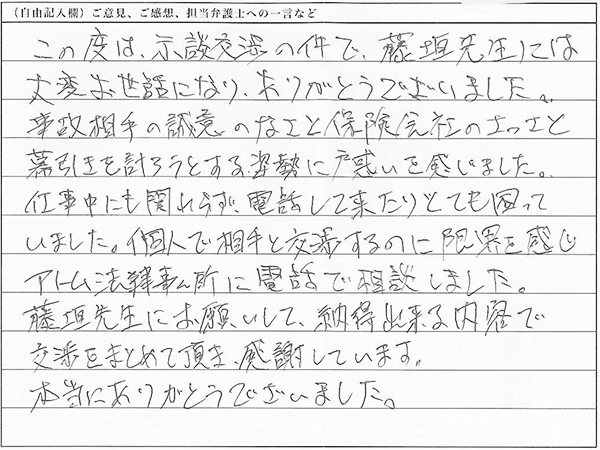 （自由記入欄）ご意見、ご感想、担当弁護士への一言など
この度は、示談交渉の件で、藤垣先生には
大変お世話になり、ありがとうございました。
事故相手の誠意のなさと保険会社のさっさと
幕引きを計ろうとする姿勢に戸惑いを感じました。
仕事中にも関わらず、電話して来たりとても困って
いました。個人で相手と交渉するのに限界を感じ
アトム法律事ム所に電話で相談しました。
藤垣先生にお願いして、納得出来る内容で
交渉をまとめて頂き、感謝しています。
本当にありがとうございました。